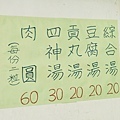 綜合湯 20
豆腐湯 20
貢丸湯 20
四神湯 30
肉圓 60
(每份二粒)